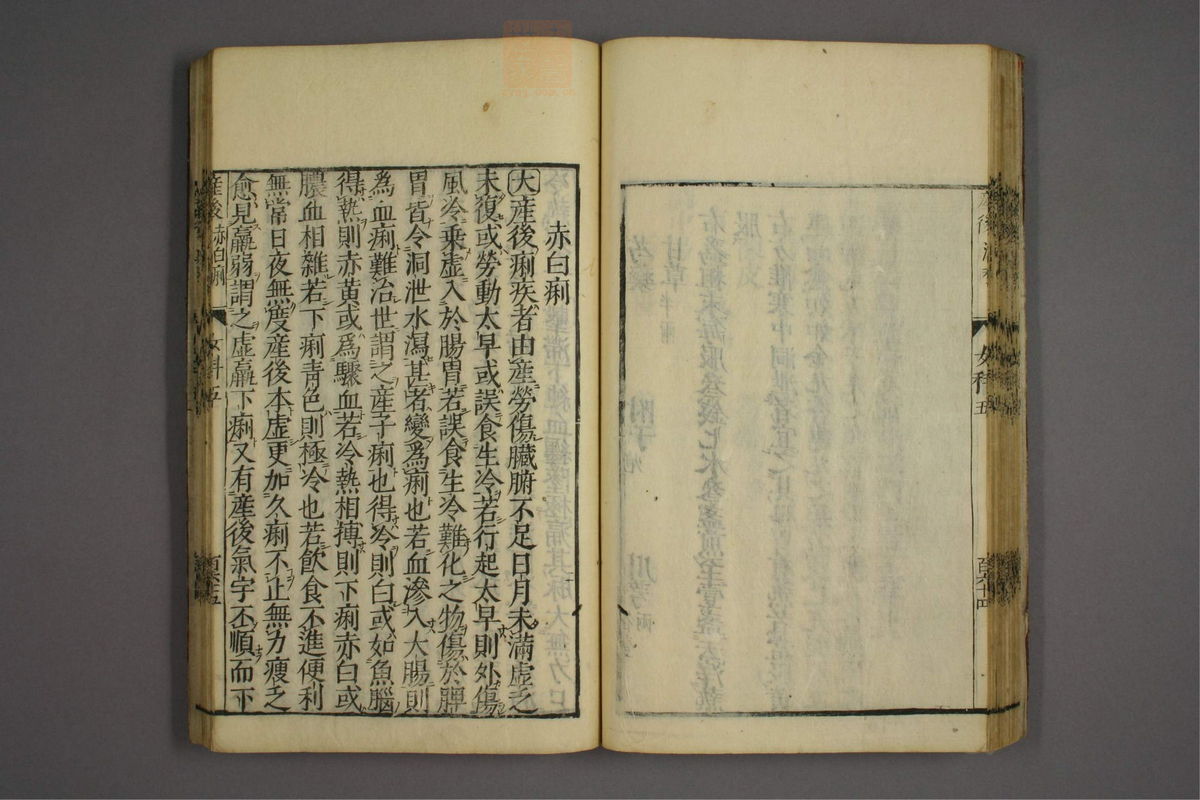 女科五
百六十四
赤白痢
大產後痢疾者由產勞傷臟腑不足日月未滿虛乏
未復或勞動太早或誤食生冷若行起太早則外傷
風冷乘虛入於腸胃若誤食生冷難化之物傷於脾
胃皆令洞泄水瀉甚者變爲痢也若血滲入大腸則
爲血痢難治世謂之產子痢也得冷則白或如魚腦
得熱則赤黃或爲驟血若冷熱相搏則下痢赤白或
膿血相雜若下痢青色則極冷也若飲食不進便利
無常日夜無度產後本虛更加久痢不止無力瘦乏
愈見羸弱謂之虛羸下痢又有產後氣字不順而下
產後 赤白痢
女科五
百六十五